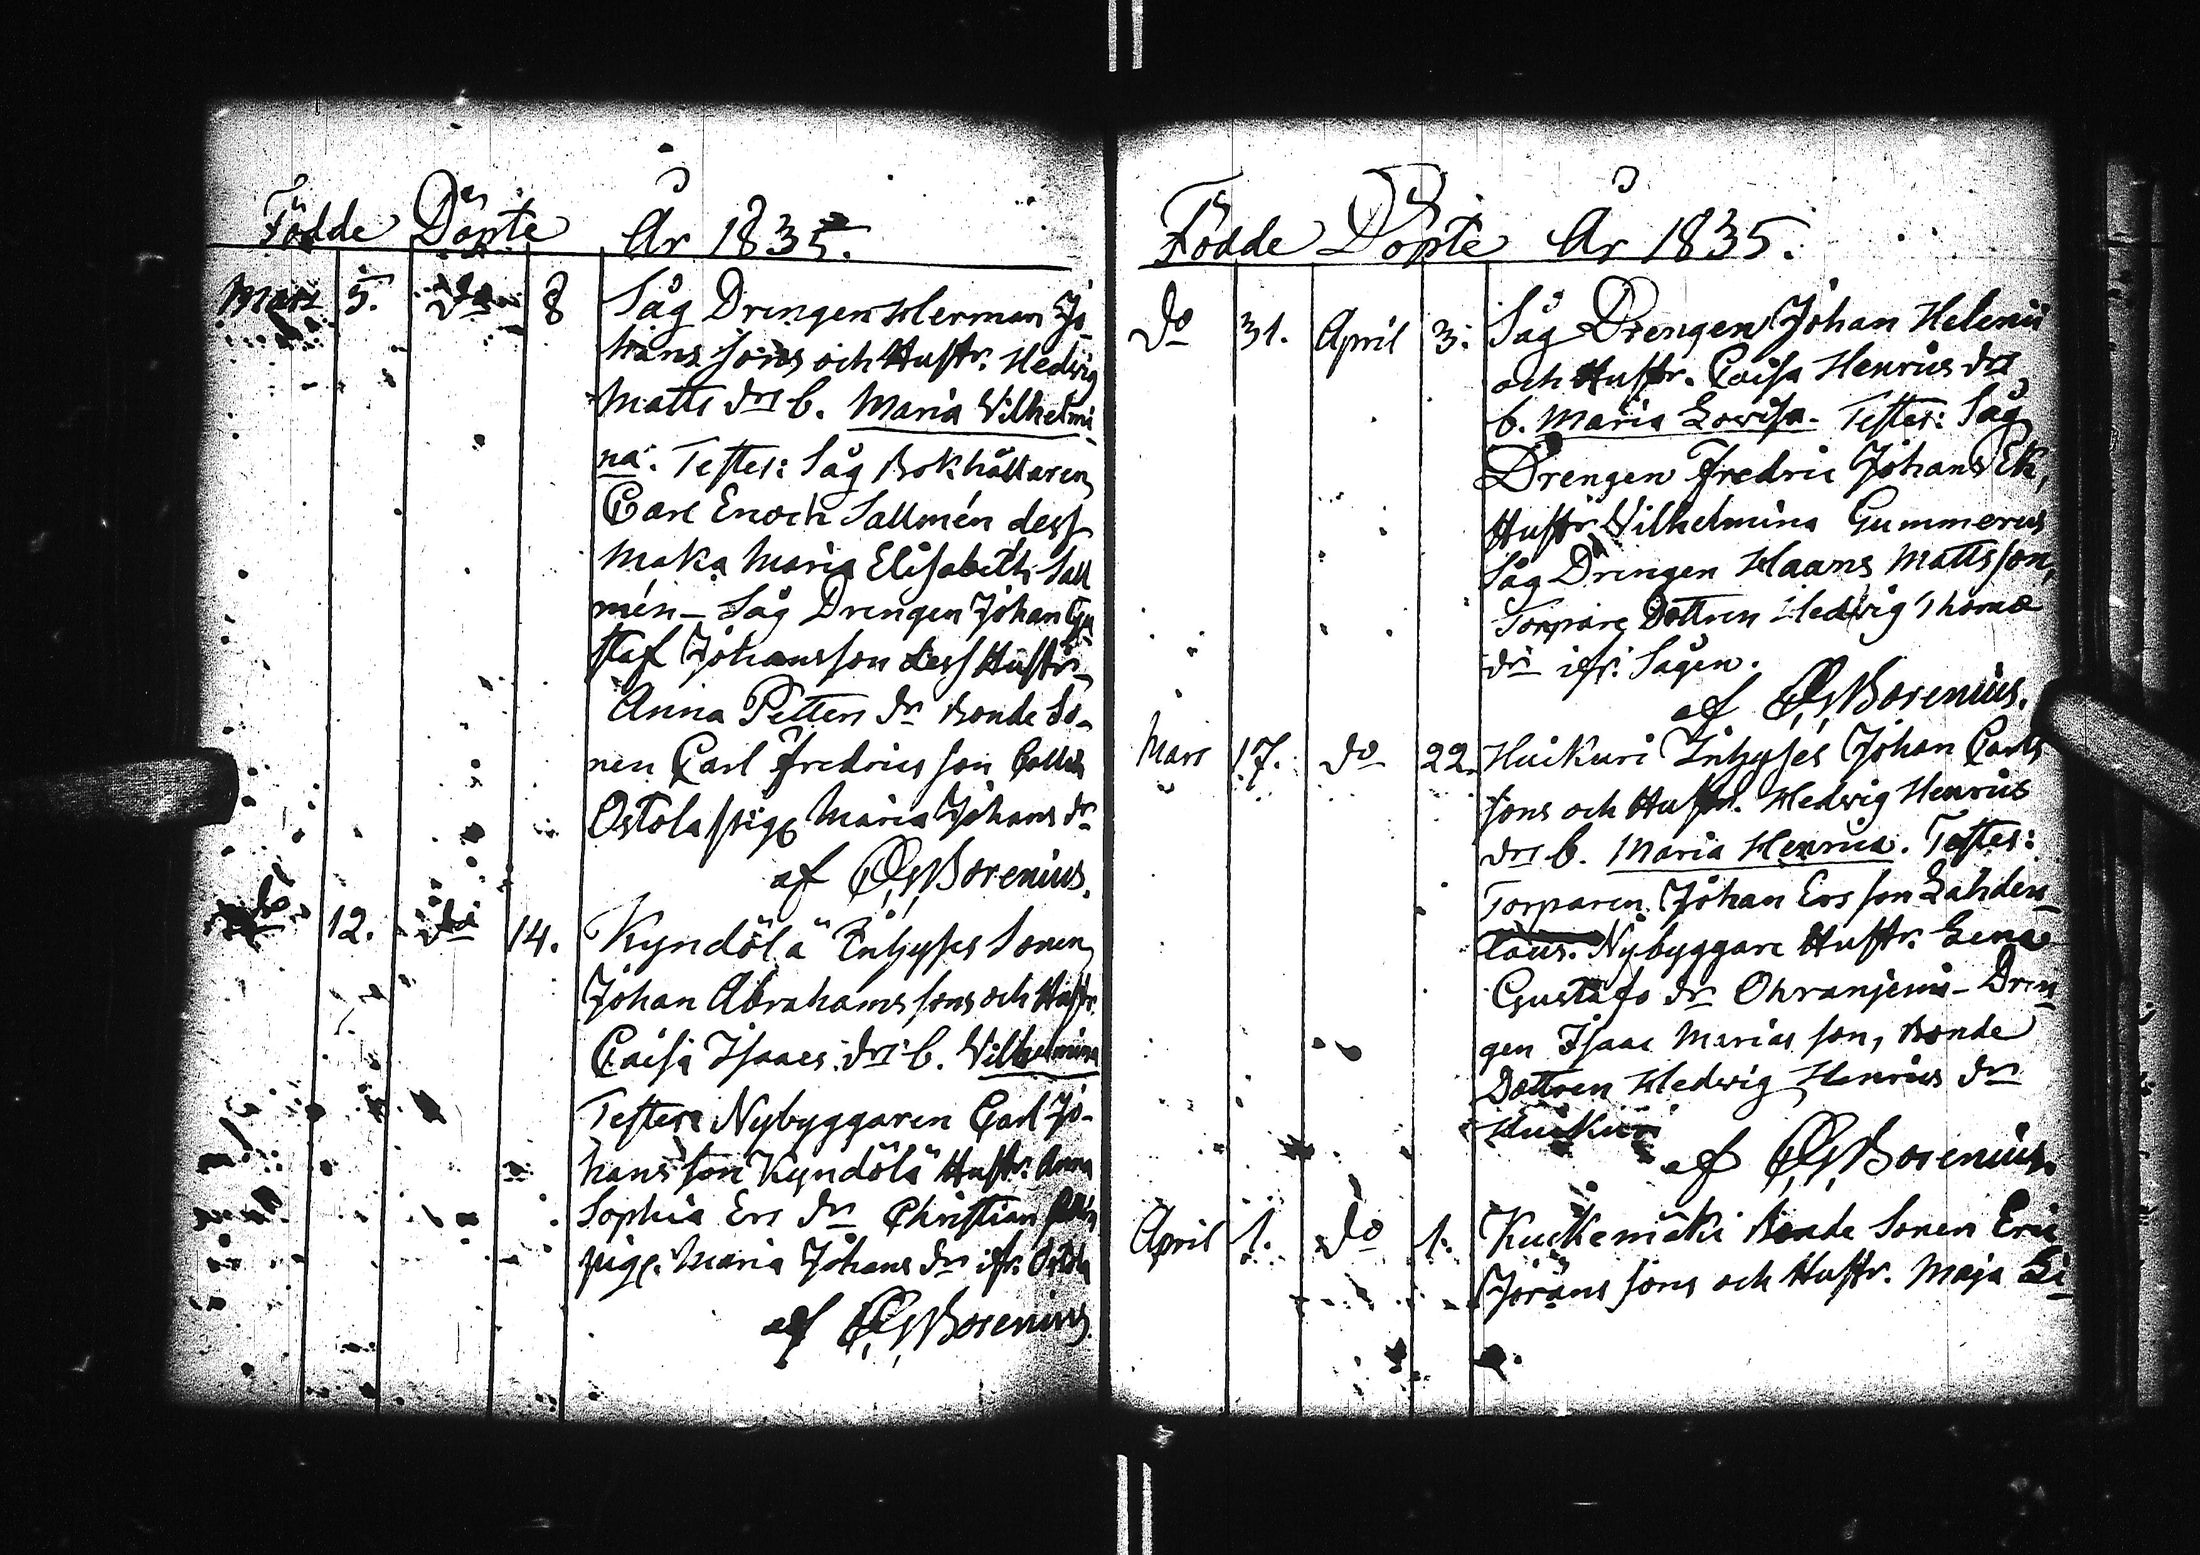 Födde Döpte År 1835.
Mars 5. do 8 Såg Drengen Herman Jo-
hans sons och Hustr. Hedvig
Matts drs b. Maria Vilhelmi-
na. Testes: Såg Bokhållaren
Carl Enoch Sallmén dess
Maka Maria Elisabeth Sall
mén – Såg Drengen Johan Gu
staf Johansson dess Hustr
Anna Petters dr Bonde So-
nen Carl Fredricsson
Ostola pig. Maria Johans dr
af Borenius.
do 12. do 14. Kyndölä Inhyses Sonen
Johan Abrahams sons och Hustr.
Caisa Isaacs drs b. Vilhelmina
Testes: Nybyggaren Carl Jo-
hans son Kyndölä Hustr. Anna
Sophia Ers dr Christian
pig. Maria Johans dr ifr. Ostola
af Borenius.
Födde Döpte År 1835.
do 31. April 3. Såg Drengen Johan Helenii
och Hustr. Caisa Henrics drs
b. Maria Lovisa. Testes: Såg
Drengen Fredric Johans Ek,
Hustr. Vilhelmina Gummerus
Såg Drengen Haans Mattsson,
Torpare Dottren Hedvig Thomæ
dr ifr. Sågen.
af Borenius.
Mars 17. do 22. Huikuri Inhyses Johan Carls
sons och Hustr. Hedvig Henrics
drs b. Maria Henrica. Testes:
Torparen Johan Ers son Lahden
taus. Nybyggare Hustr. Lena
Gustafs dr Ohranjemi – Dren
gen Isaac Marias son, Bonde
Dottren Hedvig Henrics dr
Huikuri
af Borenius.
April 1. do 1. Kuckemäki Bonde Sonen Eric
Jörans sons och Hustr. Maja Li